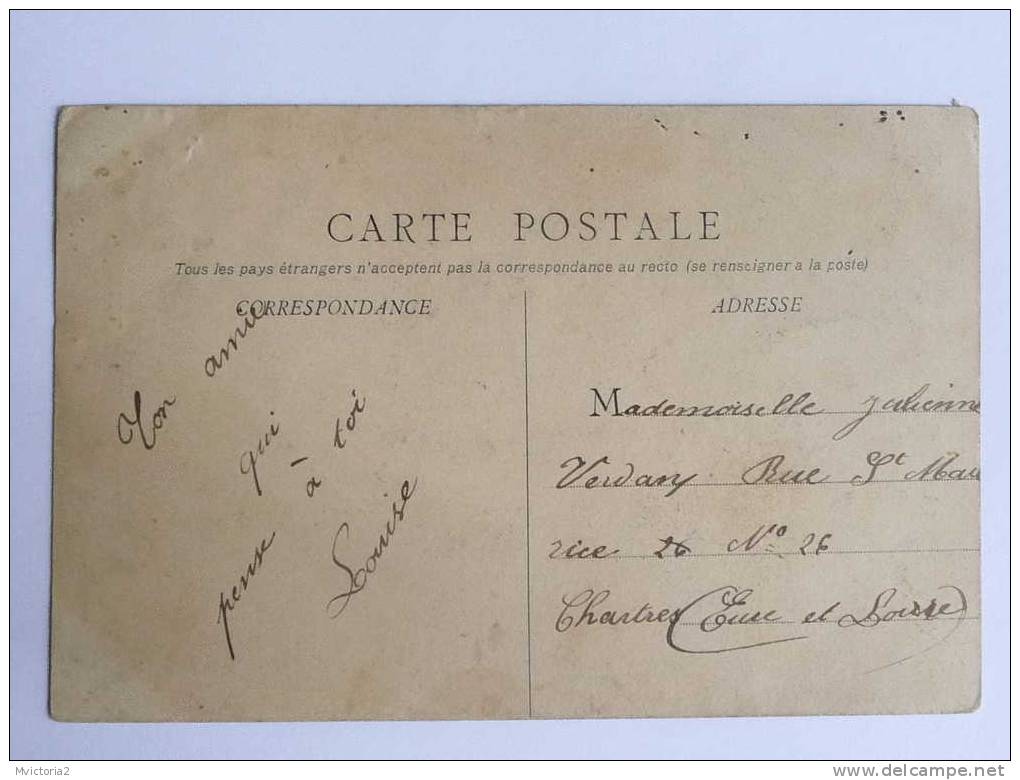 CARTE POSTALE
Tous les pays étrangers n'acceptent pas la correspondance au recto (se renseigner a la poste)
CORRESPONDANCE
Ton amie
qui
pense à toi
Louise
ADRESSE
Mademoiselle Julienne
Rue St Mau
rice 26 No 26
Chartres (Eure et Loire)
Mvictoria2
delcampe.net